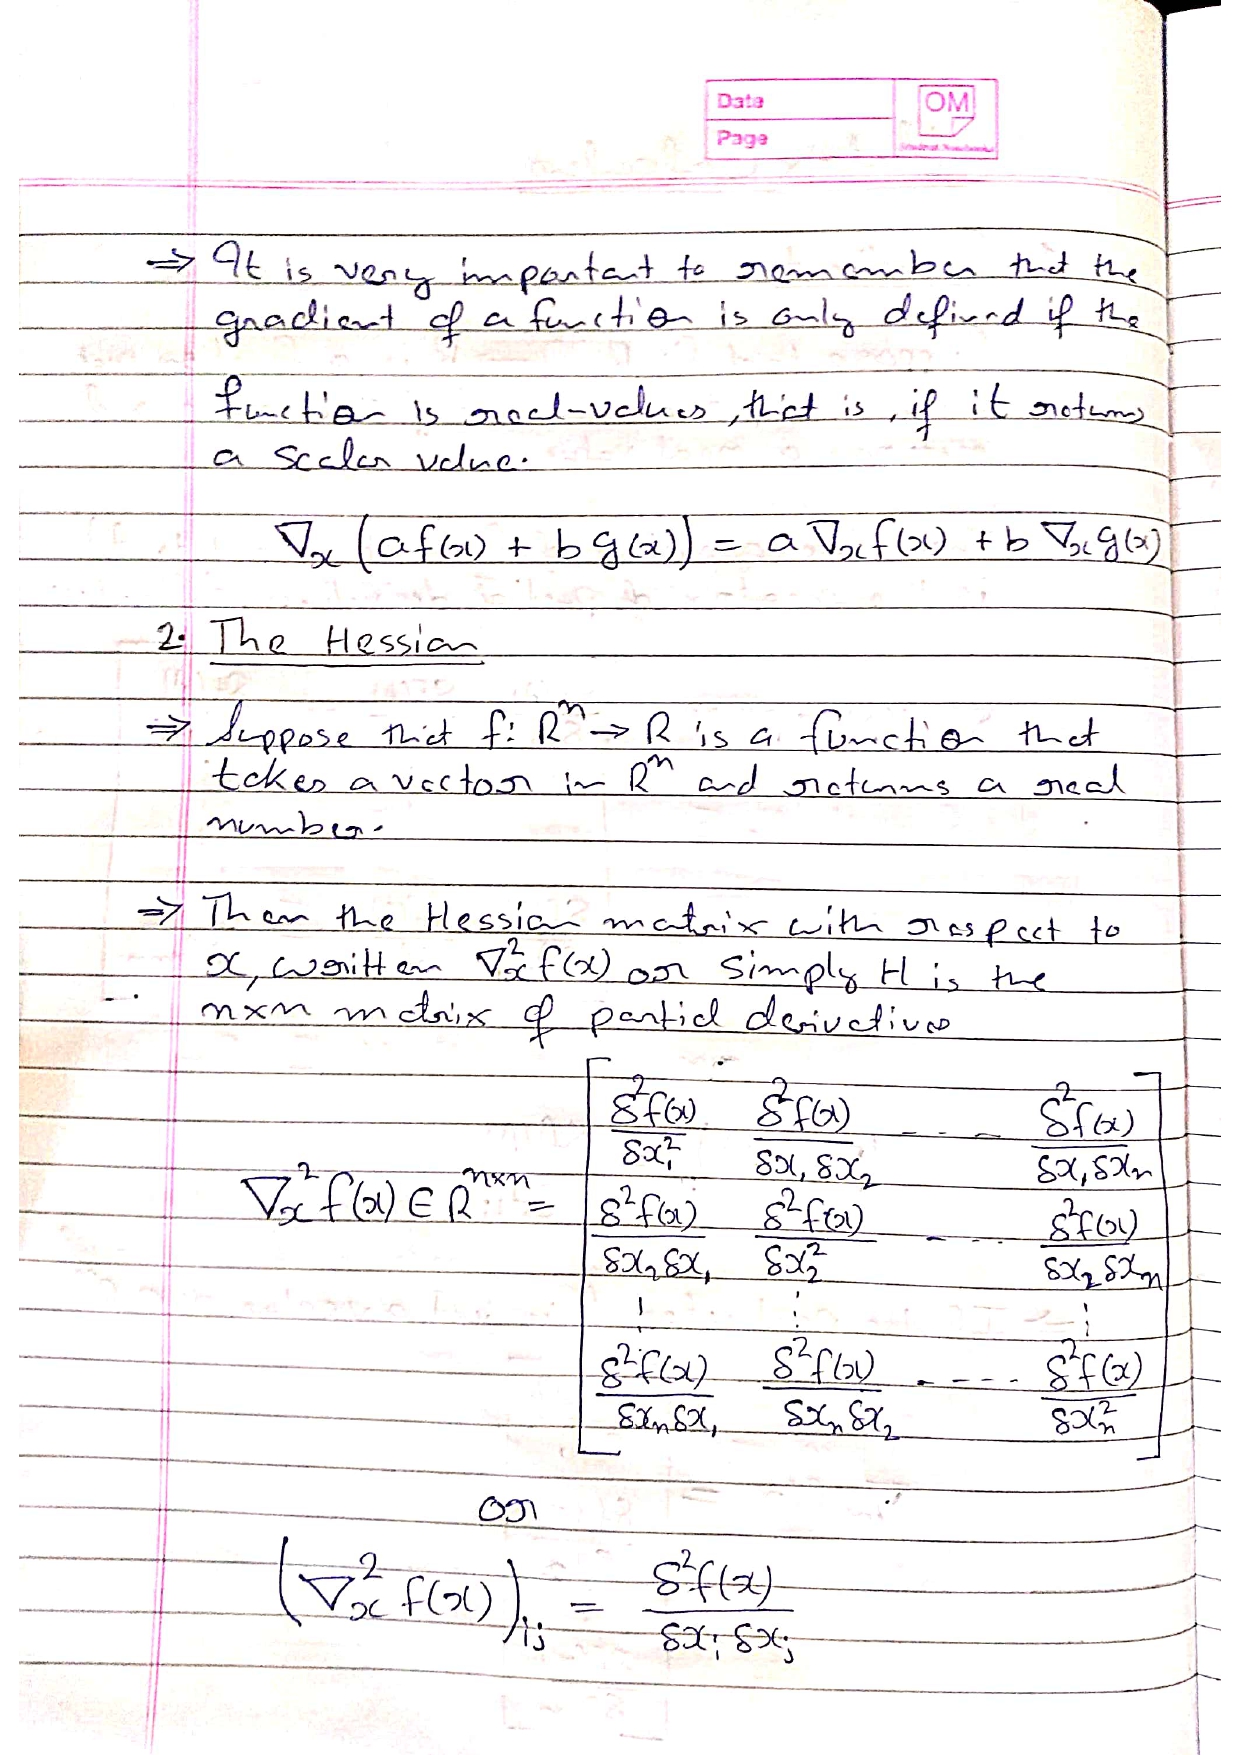 Date
OM
Page
⇒ It is very important to remember that the
gradient of a function is only defined if the
function is real-values, that is, if it returns
a scalar value.
∇x (af(x) + bg(x)) = a∇x f(x) + b∇x g(x)
2. The Hessian
⇒ Suppose that f: R^n → R is a function that
takes a vector in R^n and returns a real
number.
⇒ Then the Hessian matrix with respect to
x, written ∇²x f(x) or simply H is the
n×n matrix of partial derivatives
∇x² f(x) ∈ R^n×n = [
δ²f(x)/δx₁² δ²f(x)/δx₁δx₂ - - - δ²f(x)/δx₁δxn
δ²f(x)/δx₂δx₁ δ²f(x)/δx₂² - - - δ²f(x)/δx₂δxn
⋮ ⋮ ⋮
δ²f(x)/δxnδx₁ δ²f(x)/δxnδx₂ - - - - δ²f(x)/δxn²
]
or
(∇x² f(x))ij = δ²f(x)/δxi δxj